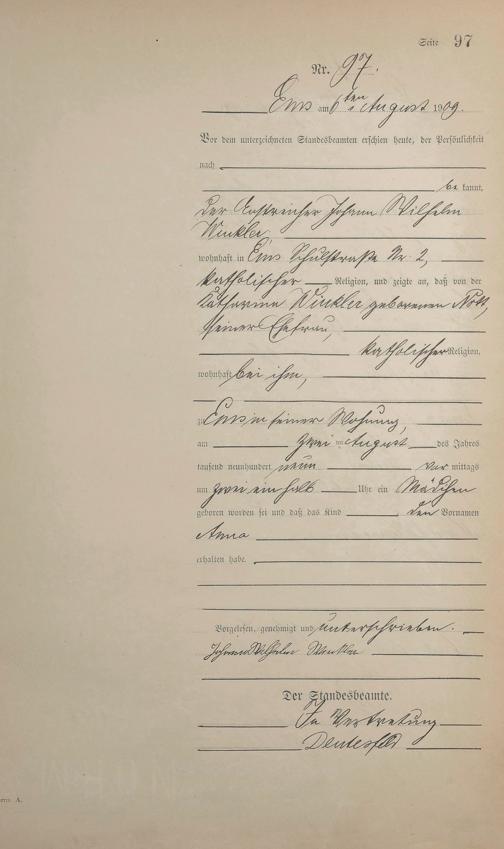 Seite 97
Nr. 97.
Ems am 6ten August 1909.
Vor dem unterzeichneten Standesbeamten erschien heute, der Persönlichkeit
nach
be kannt,
der Anstreicher Johann Wilhelm
Winkler,
wohnhaft in Ems Schulstraße Nr. 2,
katholischer Religion, und zeigte an, daß von der
Katharina Winkler geborenen Noll,
seiner Ehefrau,
katholischer Religion,
wohnhaft bei ihm,
zu Ems in seiner Wohnung,
am zwei ten August des Jahres
tausend neunhundert neun Vor mittags
um zwei einhalb Uhr ein Mädchen
geboren worden sei und daß das Kind den Vornamen
Anna
erhalten habe.
Vorgelesen, genehmigt und unterschrieben.
Johann Wilhelm Winkler
Der Standesbeamte.
In Vertretung
A.